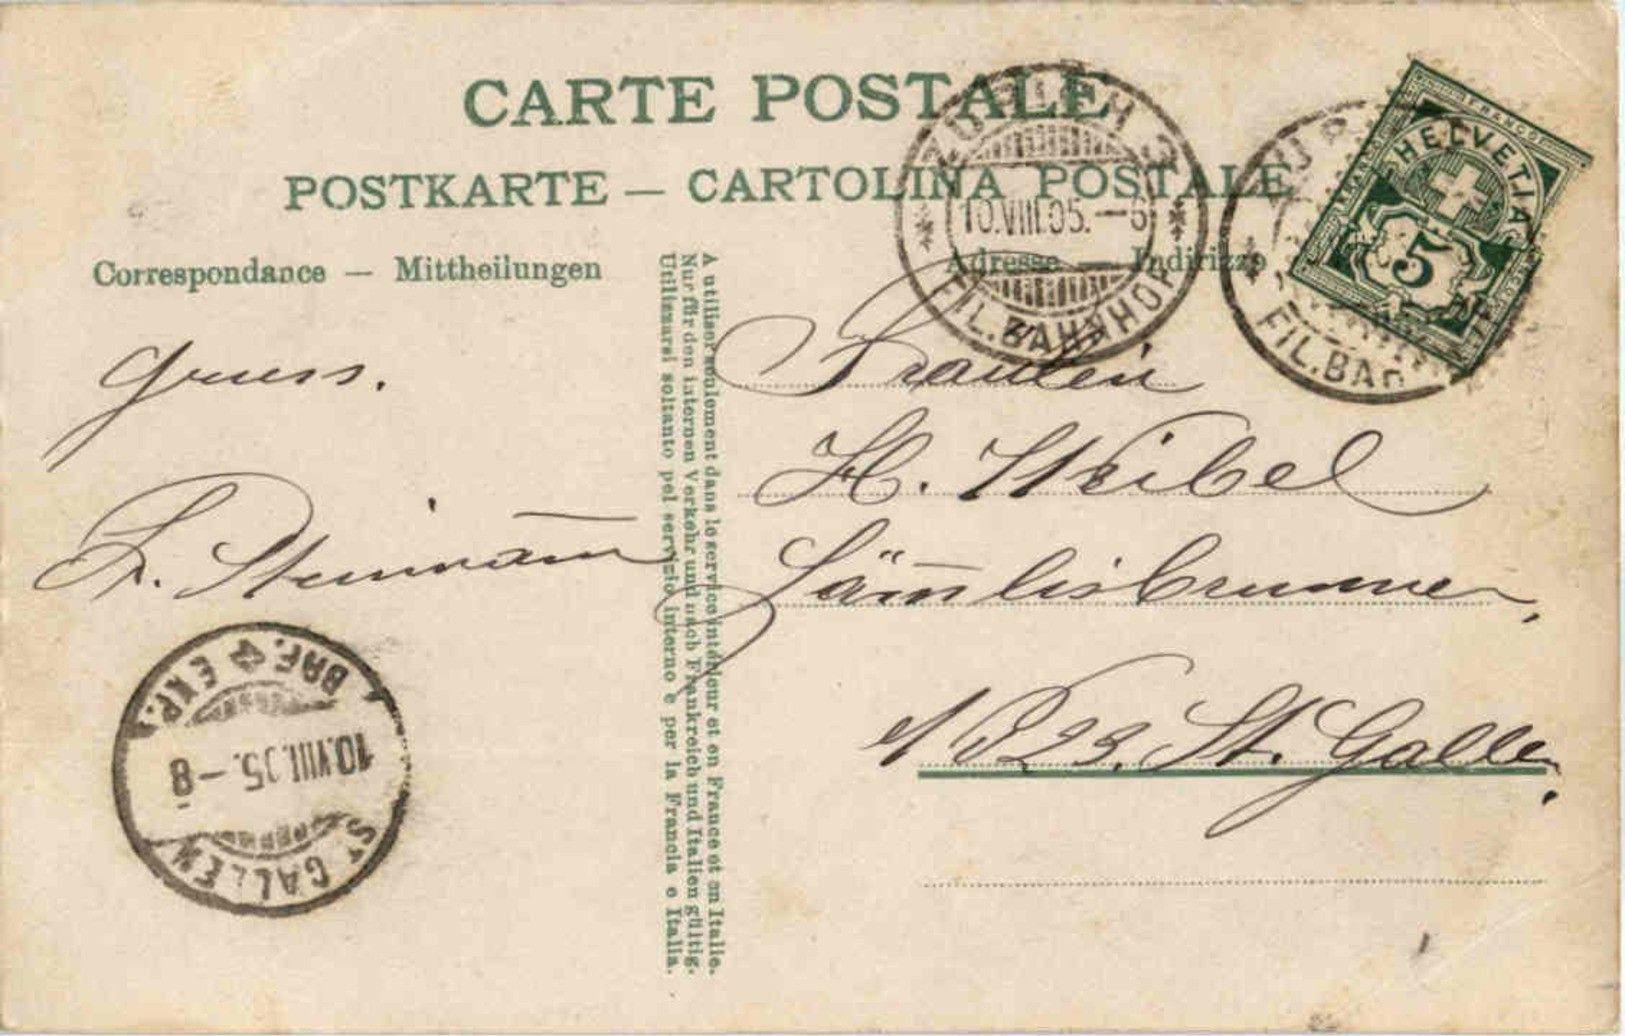 CARTE POSTALE
POSTKARTE — CARTOLINA POSTALE
Correspondance — Mittheilungen
Adresse — Indirizzo
A utiliser seulement dans le service intérieur et en France et an Italie.
Nur für den internen Verkehr und nach Frankreich und Italien gültig.
Utilizzarsi soltanto pel servizio interno e per la Francia e Italia.
ZÜRICH
10.VIII.05.–6
FIL. BAHNHOF
FIL. BA
HELVETIA
5
FRANCO
Gruss.
Fr. Steiman̄
Fräulein
H. Weibel
Läm̄lisbrunnen,
N° 23. St. Gallen.
ST. GALLEN
10.VIII.05.–8
BRF. EXP.